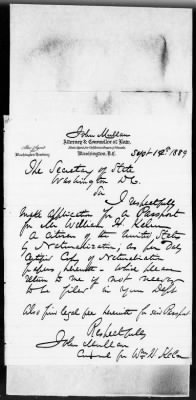 John Mullan
Attorney & Counselor at Law,
Washington, D.C.
Also Agent
for
Washington Territory
Sept 19th 1889
The Secretary of State
Washington D.C.
Sir
I respectfully
make application for a Passport
for Mr William H.
A Citizen of the United States
by Naturalization; as per
Certified Copy of Naturalization
papers herewith - which please
return to me if not necessary
to be filed in your Dept
Also find legal fee herewith for said Passport
Respectfully
John Mullan
Counsel for Wm H.